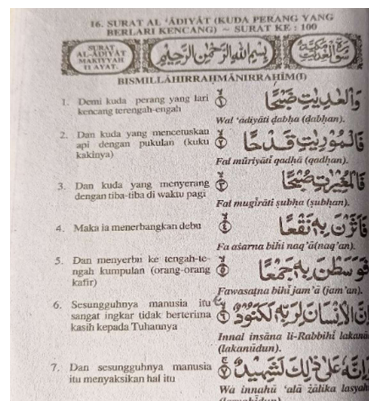 16. SURAT AL 'ÂDIYÂT (KUDA PERANG YANG
BERLARI KENCANG) ~ SURAT KE : 100
SURAT
AL-ÂDIYÂT
MAKIYYAH
11 AYAT.
بِسْمِ اللّٰهِ الرَّحْمٰنِ الرَّحِيْمِ
BISMILLÂHIRRAHMÂNIRRAHÎM(I)
1. Demi kuda perang yang lari
kencang terengah-engah
وَالْعٰدِيٰتِ ضَبْحًا ١
Wal 'âdiyâti dabha (dabhan).
2. Dan kuda yang mencetuskan
api dengan pukulan (kuku
kakinya)
فَالْمُوْرِيٰتِ قَدْحًا ٢
Fal mûriyâti qadhâ (qadhan).
3. Dan kuda yang menyerang
dengan tiba-tiba di waktu pagi
فَالْمُغِيْرٰتِ صُبْحًا ٣
Fal mugîrâti subha (subhan).
4. Maka ia menerbangkan debu
فَاَثَرْنَ بِهٖ نَقْعًا ٤
Fa aśarna bihî naq'â(naq'an).
5. Dan menyerbu ke tengah-te-
ngah kumpulan (orang-orang
kafir)
فَوَسَطْنَ بِهٖ جَمْعًا ٥
Fawasatna bihî jam'â (jam'an).
6. Sesungguhnya manusia itu
sangat ingkar tidak berterima
kasih kepada Tuhannya
اِنَّ الْاِنْسَانَ لِرَبِّهٖ لَكَنُوْدٌ ٦
Innal insâna li-Rabbihî lakanû
(lakanûdun).
7. Dan sesungguhnya manusia
itu menyaksikan hal itu
وَاِنَّهٗ عَلٰى ذٰلِكَ لَشَهِيْدٌ ٧
Wa innahû 'alâ żâlika lasyah